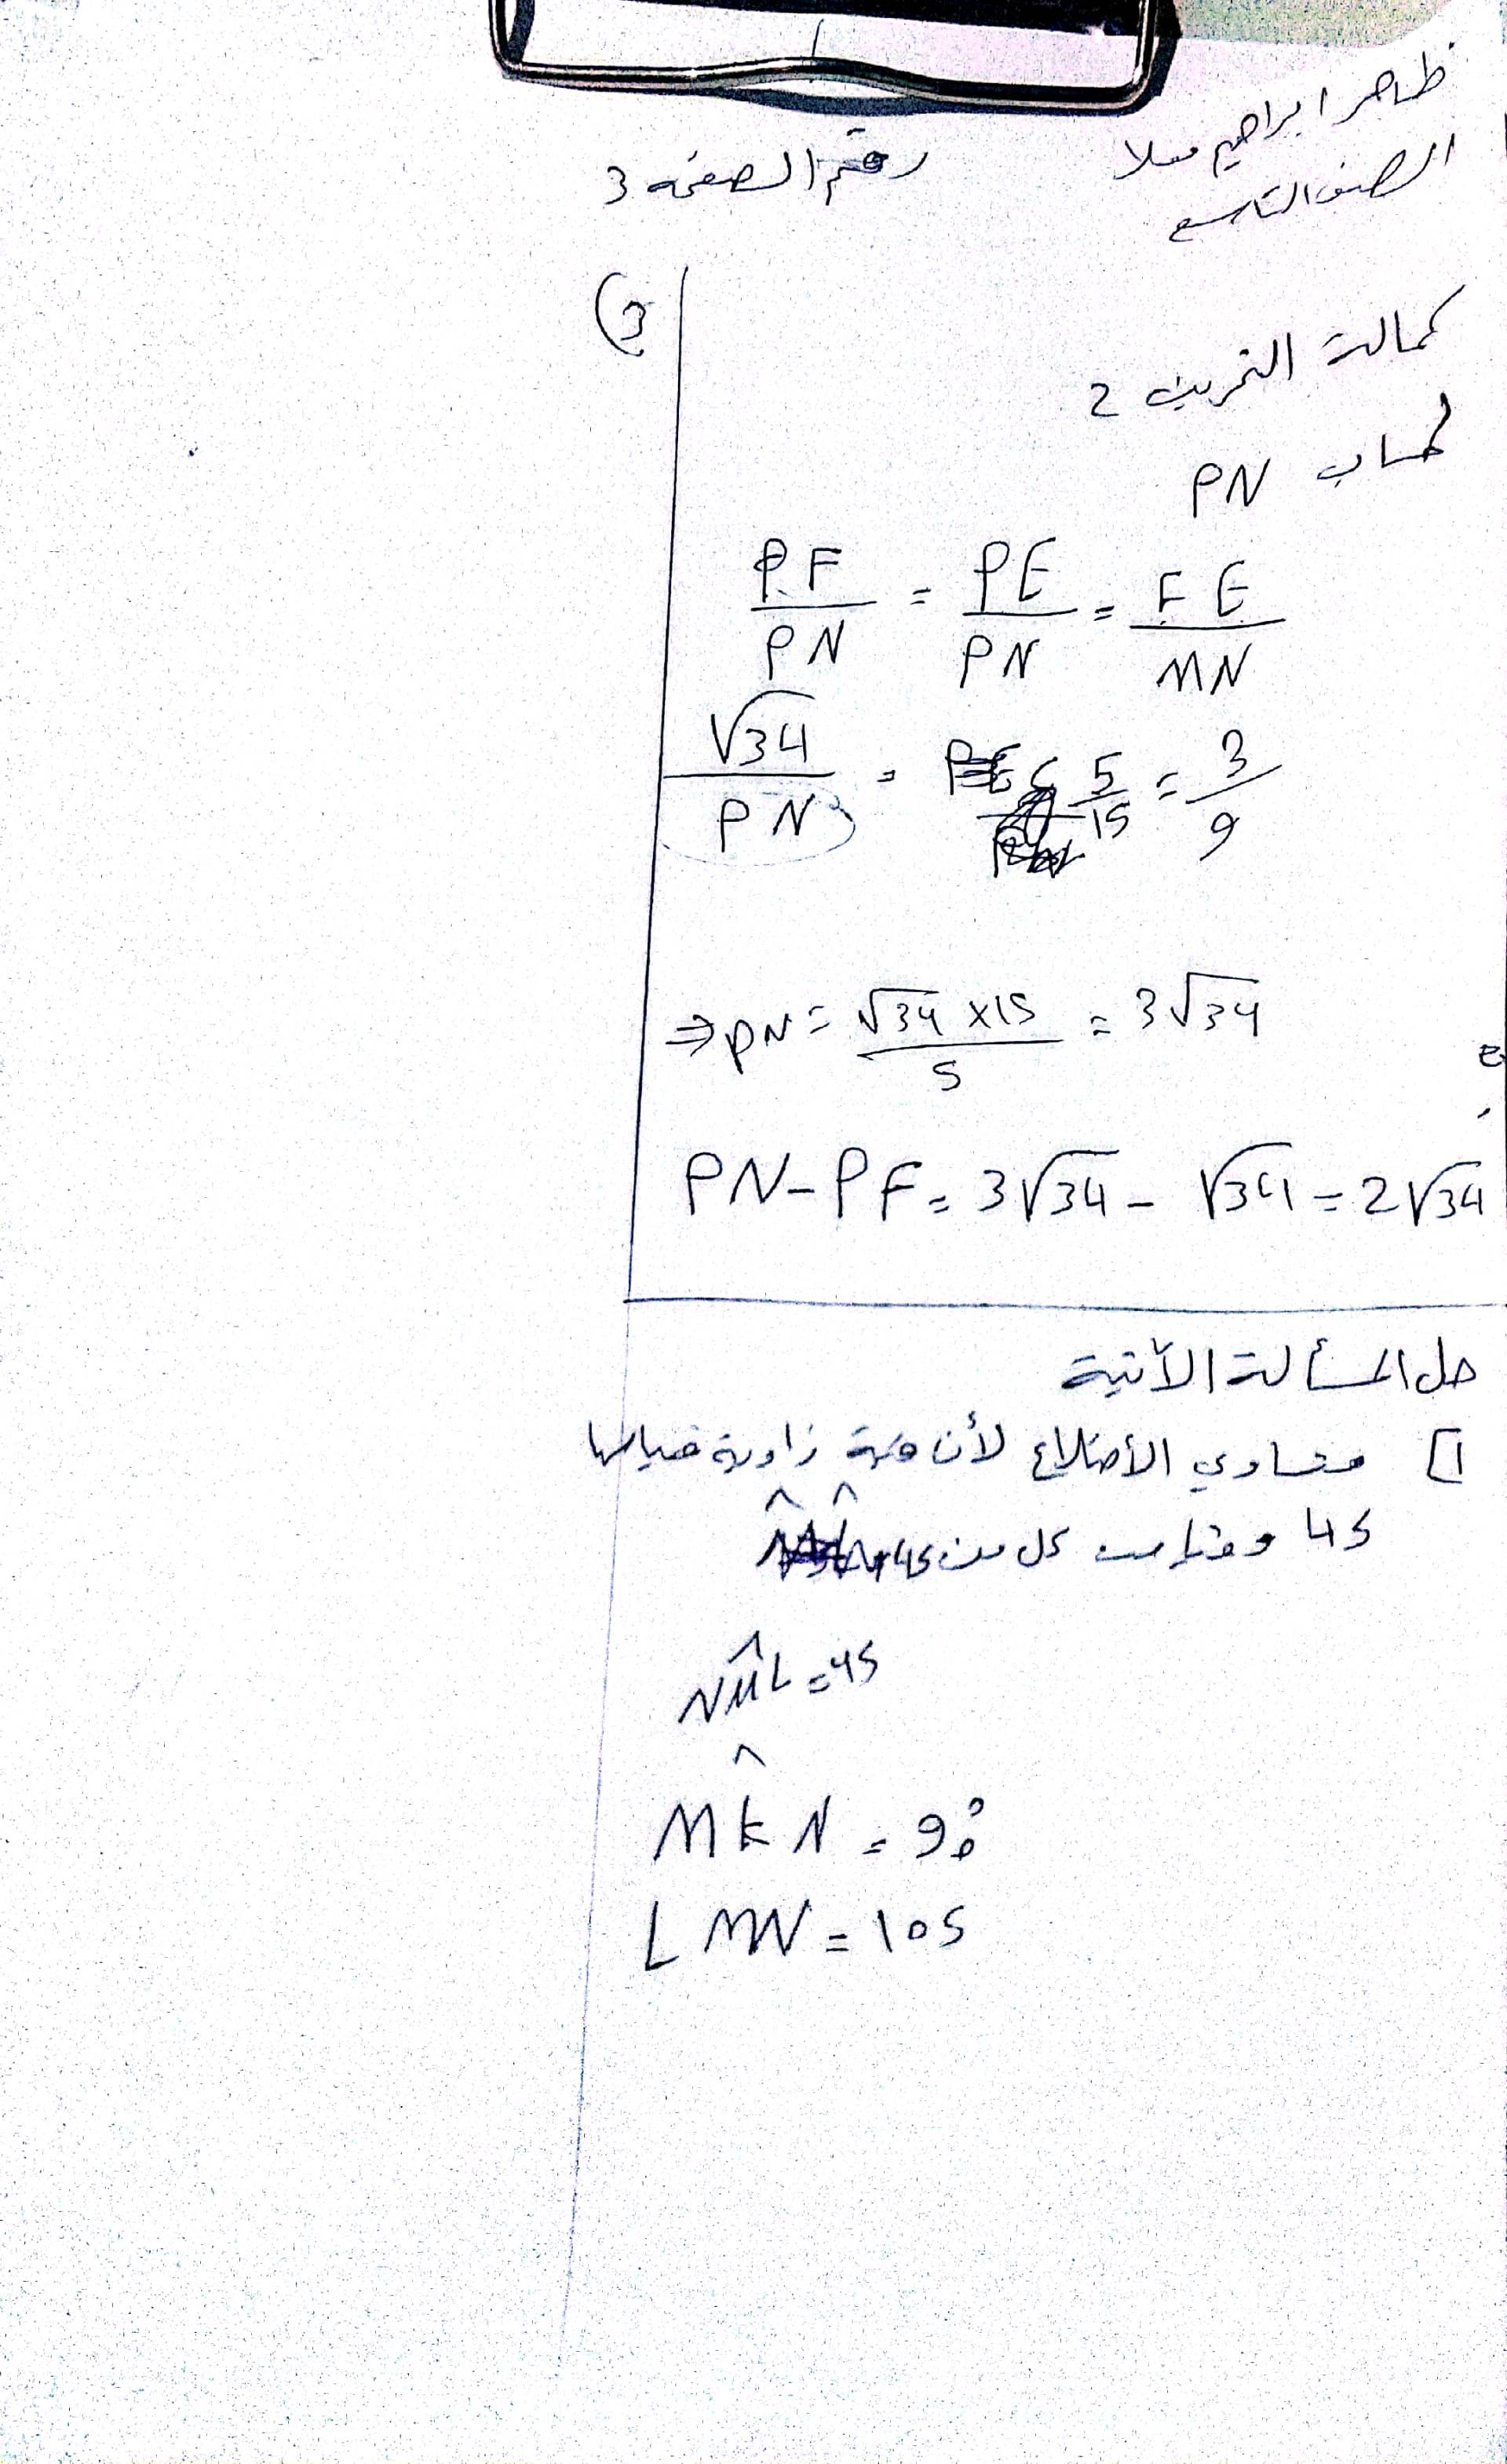 ظاهر ابراهيم معلا
الصف التاسع
رقم الصفحة 3
3)
كمالة التمرين 2
لحساب PN
PF/PN = PE/PN = FE/MN
√34/PN = 5/15 = 3/9
⇒ PN = √34 x15/5 = 3√34
PN - PF = 3√34 - √34 = 2√34
حل المسألة الآتية
1] متساوي الأضلاع لأن فيه زاوية قياسها
45 و كل من 45
NM̂L = 45
MK̂N = 90°
LMN = 105